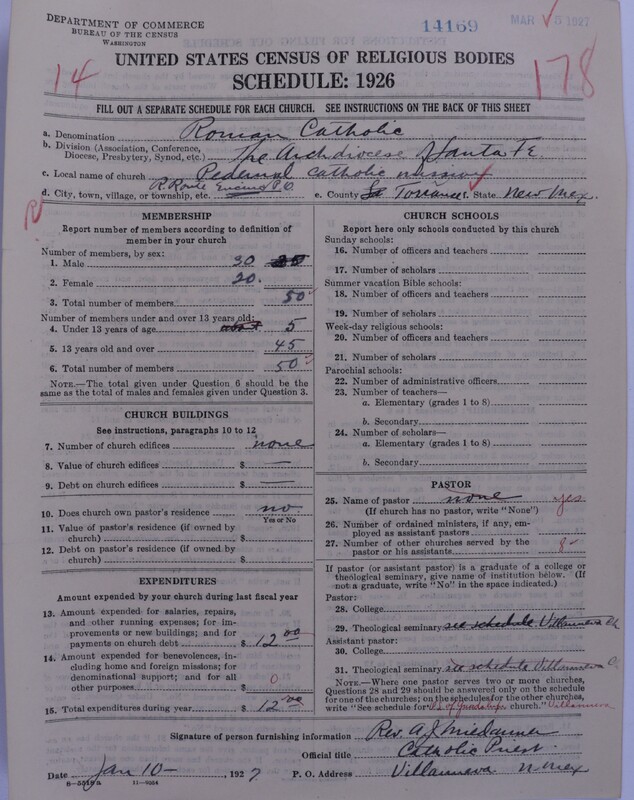 DEPARTMENT OF COMMERCE
BUREAU OF THE CENSUS
WASHINGTON
14169
MAR 5 1927
UNITED STATES CENSUS OF RELIGIOUS BODIES
SCHEDULE: 1926
14
178
FILL OUT A SEPARATE SCHEDULE FOR EACH CHURCH. SEE INSTRUCTIONS ON THE BACK OF THIS SHEET
a. Denomination Roman Catholic
b. Division (Association, Conference,
Diocese, Presbytery, Synod, etc.) The Archdiocese of Santa Fe.
c. Local name of church Pedernal Catholic mission
d. City, town, village, or township, etc. R. Route Encino P.O. e. County Torrance State New Mex.
R
MEMBERSHIP
Report number of members according to definition of
member in your church
Number of members, by sex:
1. Male 30
2. Female 20.
3. Total number of members 50
Number of members under and over 13 years old:
4. Under 13 years of age 5
5. 13 years old and over 45
6. Total number of members 50
NOTE.—The total given under Question 6 should be
the same as the total of males and females given under Question 3.
CHURCH BUILDINGS
See instructions, paragraphs 10 to 12
7. Number of church edifices none
8. Value of church edifices $ —
9. Debt on church edifices $ —
10. Does church own pastor's residence no
Yes or No
11. Value of pastor's residence (if owned by
church) $
12. Debt on pastor's residence (if owned by
church) $
EXPENDITURES
Amount expended by your church during last fiscal year
13. Amount expended for salaries, repairs,
and other running expenses; for im-
provements or new buildings; and for
payments on church debt $ 12.00
14. Amount expended for benevolences, in-
cluding home and foreign missions; for
denominational support; and for all
other purposes $ 0
15. Total expenditures during year $ 12.00
CHURCH SCHOOLS
Report here only schools conducted by this church
Sunday schools:
16. Number of officers and teachers
17. Number of scholars
Summer vacation Bible schools:
18. Number of officers and teachers
19. Number of scholars
Week-day religious schools:
20. Number of officers and teachers
21. Number of scholars
Parochial schools:
22. Number of administrative officers
23. Number of teachers—
a. Elementary (grades 1 to 8)
b. Secondary
24. Number of scholars—
a. Elementary (grades 1 to 8)
b. Secondary
PASTOR
25. Name of pastor none yes
(If church has no pastor, write "None")
26. Number of ordained ministers, if any, em-
ployed as assistant pastors
27. Number of other churches served by the
pastor or his assistants 8
If pastor (or assistant pastor) is a graduate of a college or
theological seminary, give name of institution below. (If
not a graduate, write "No" in the space indicated.)
Pastor:
28. College
29. Theological seminary see schedule Villanueva Ch
Assistant pastor:
30. College
31. Theological seminary see schedule Villanueva
NOTE.—Where one pastor serves two or more churches,
Questions 28 and 29 should be answered only on the schedule
for one of the churches; on the schedules for the other churches,
write "See schedule for of Guadalupe church." Villanueva
Signature of person furnishing information Rev. A. J. Miedanner
Official title Catholic Priest.
Date Jan 10— 1927 P. O. Address Villanueva N. Mex
8-5518a 11-9034